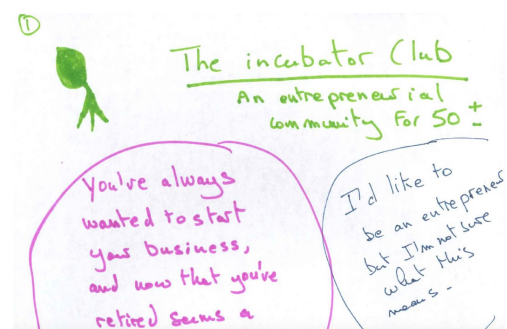 1
The incubator Club
An entrepreneurial
community For 50 ±
You've always
wanted to start
your business,
and now that you've
retired seems a
I'd like to
be an entrepreneur
but I'm not sure
what this
means -